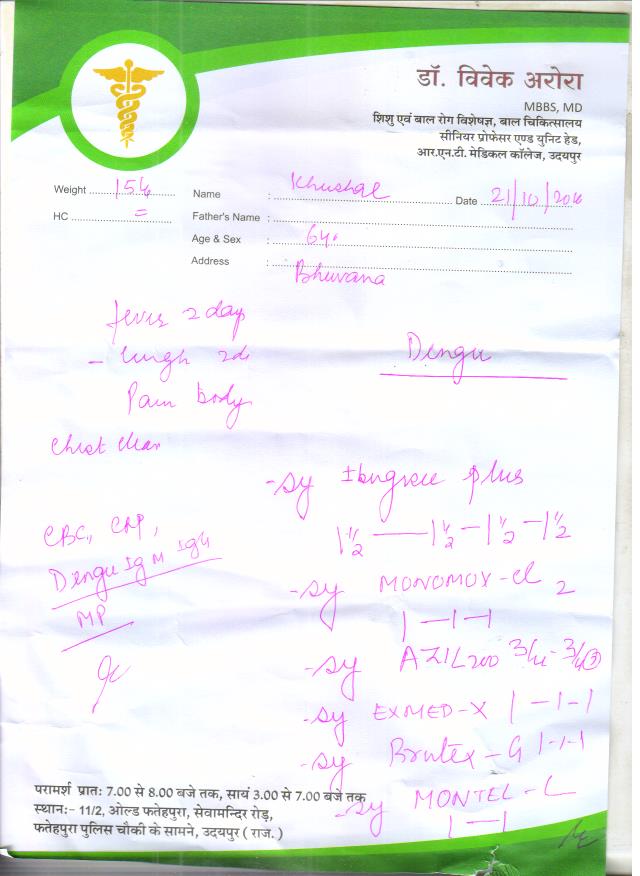 डॉ. विवेक अरोरा
MBBS, MD
शिशु एवं बाल रोग विशेषज्ञ, बाल चिकित्सालय
सीनियर प्रोफेसर एण्ड युनिट हेड,
आर.एन.टी. मेडिकल कॉलेज, उदयपुर
Weight 15
Name : Khushal Date 21/10/2016
HC =
Father's Name :
Age & Sex : 6
Address : Bhuvana
fever 2 day
- cough 2d
Dengu
Pain body
Chest clear
- sy plus
1 1/2 — 1 1/2 - 1 1/2 - 1 1/2
CBC, CRP,
Dengu IgM IgG
MP
- sy MONOMOX-CL 2
1 - 1 - 1
- sy AZIL 200 3/4 - 3/4 (3)
- sy EXMED-X 1 - 1 - 1
- sy Brutex - G 1-1-1
- sy MONTEL - L
1 - 1
परामर्श प्रात: 7.00 से 8.00 बजे तक, सायं 3.00 से 7.00 बजे तक
स्थान:- 11/2, ओल्ड फतेहपुरा, सेवामन्दिर रोड़,
फतेहपुरा पुलिस चौकी के सामने, उदयपुर ( राज. )